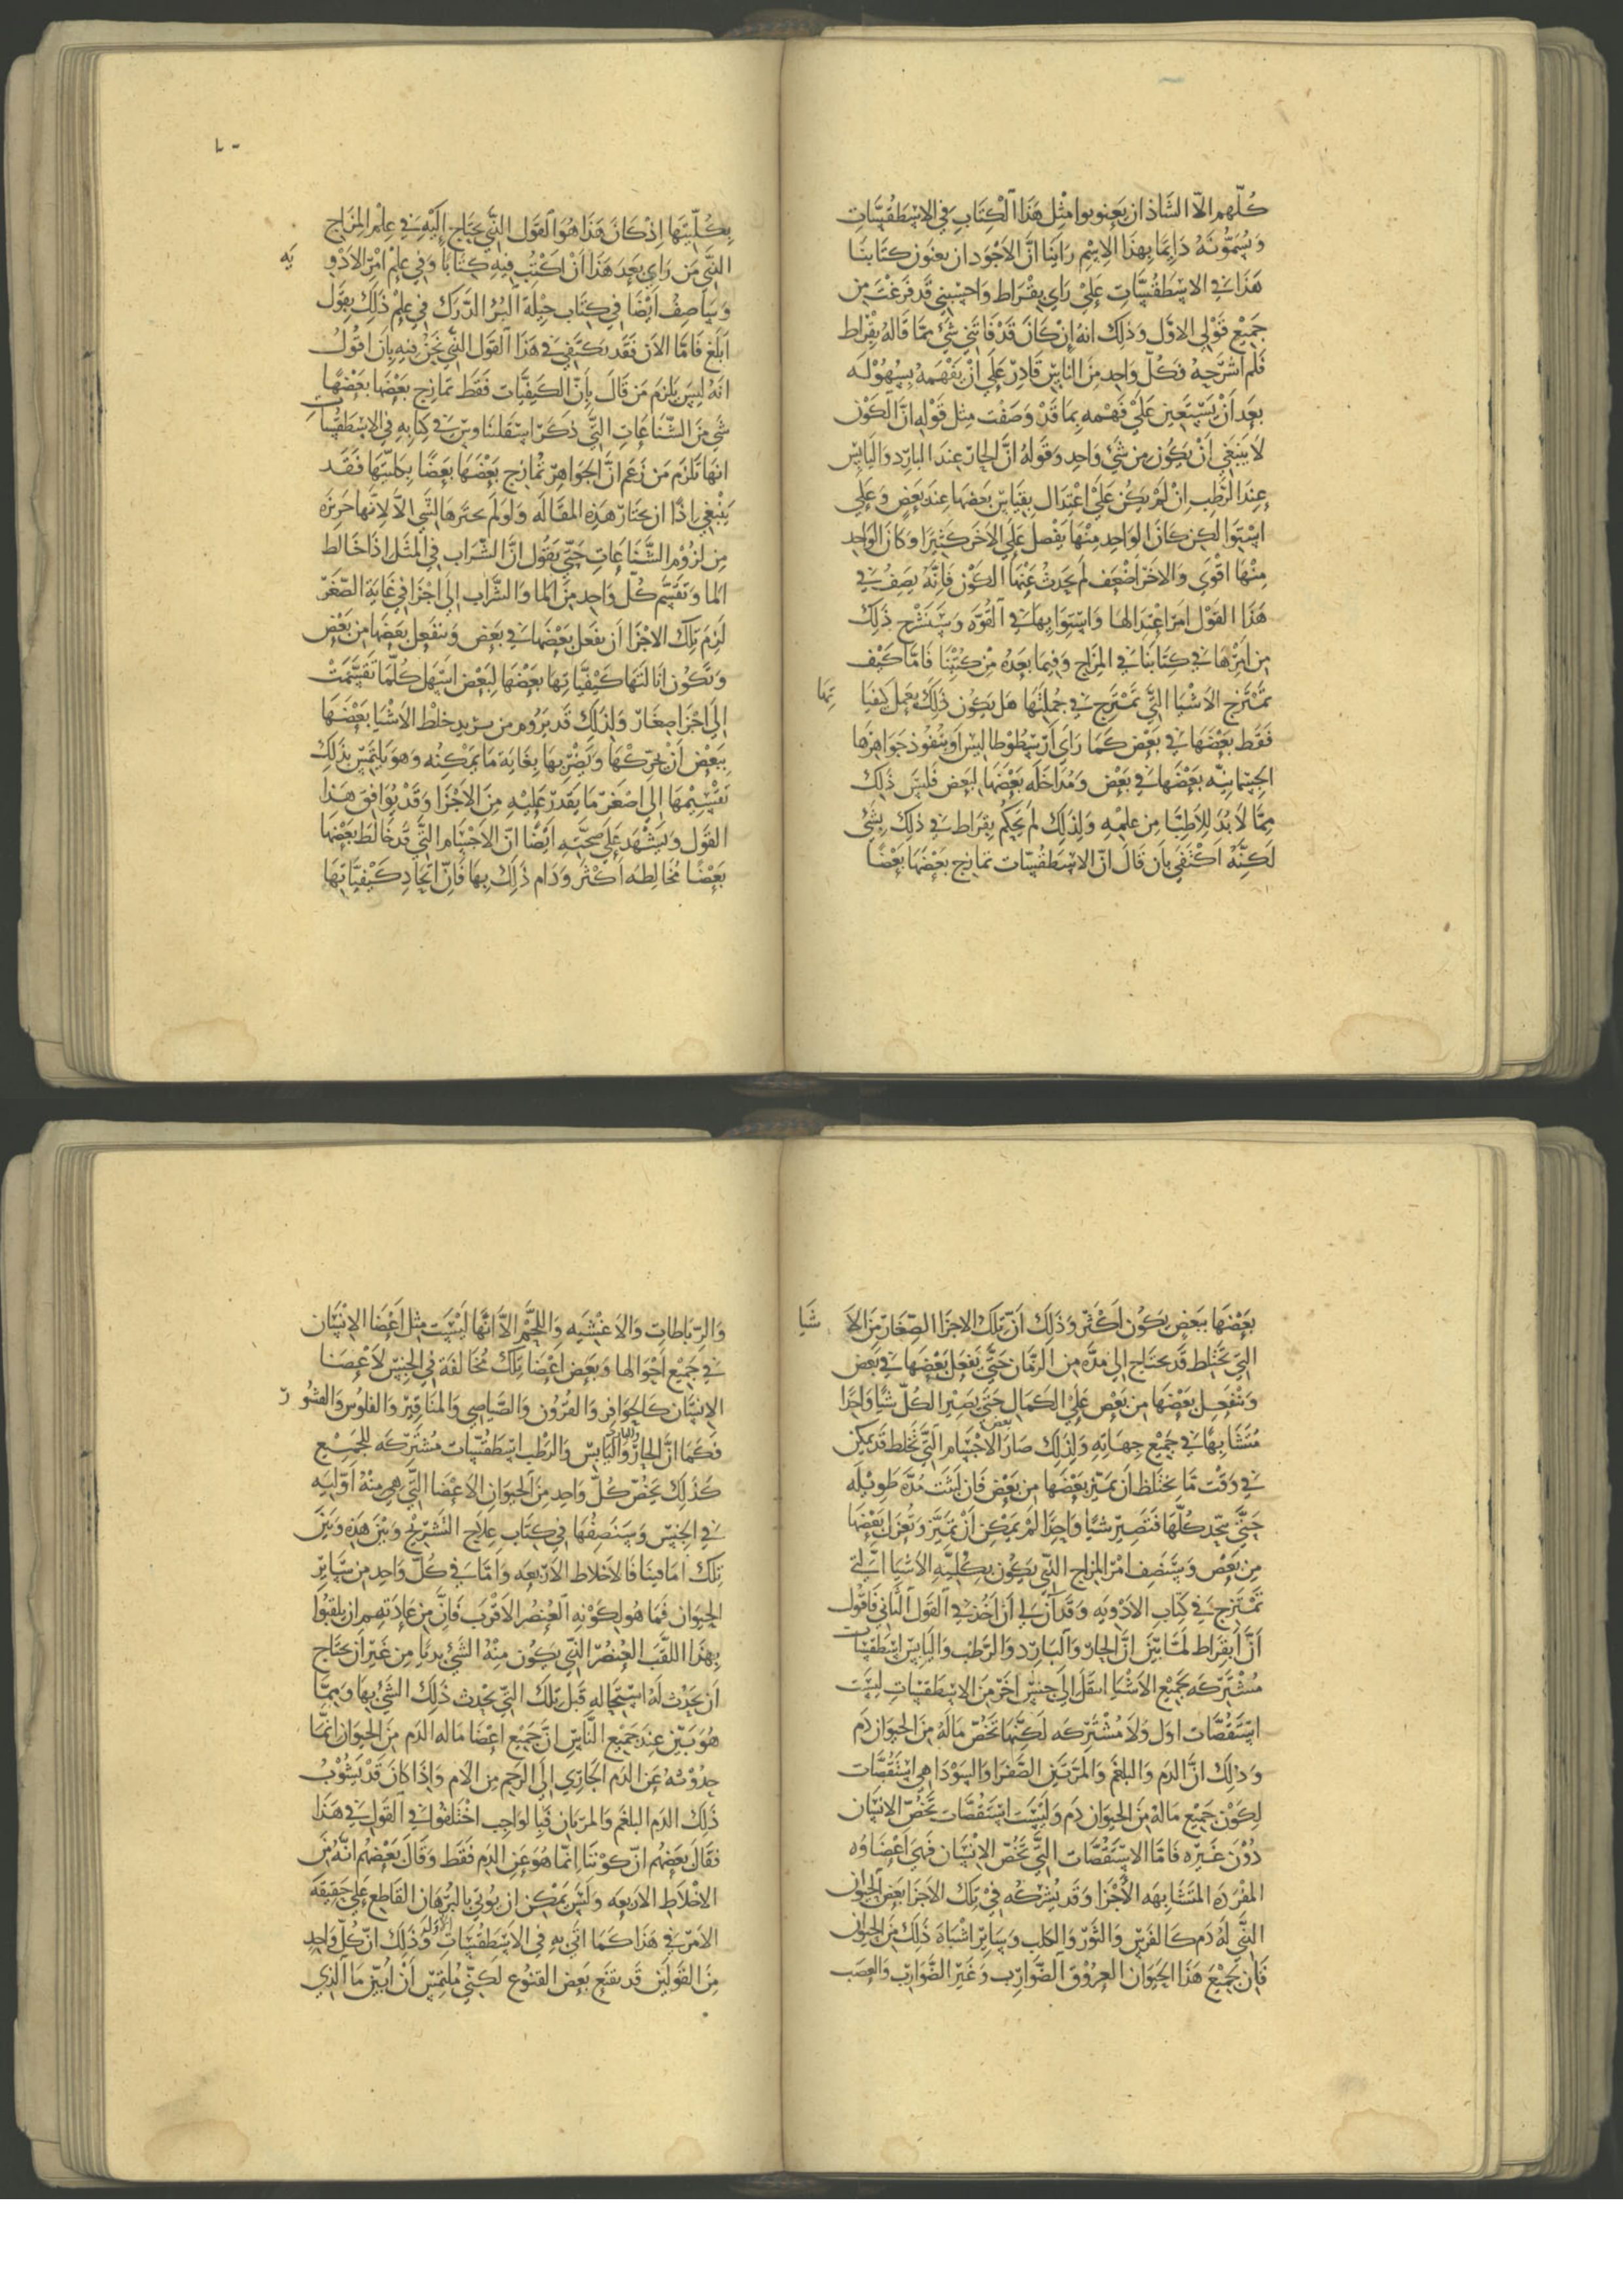 كلهم الا الشاذ ان يعنونوا مثل هذا الكتاب في الاسطقسات
ويسمونه دايما بهذا الاسم راينا ان الاجود ان يعنون كتابنا
هذا في الاسطقسات علي راي بقراط واحسبني قد فرغت من
جميع قولي الاول وذلك انه ان كان قد فاتني شي مما قاله بقراط
فلم اشرحه فكل واحد من الناس قادر علي ان يفهمه بسهوله
بعد ان يستعين علي فهمه بما قد وصفت مثل قوله ان الكون
لا ينبغي ان يكون من شي واحد وقوله ان الحار عند البارد واليابس
عند الرطب ان لم يكن علي اعتدال بقياس بعضها عند بعض وعلي
استوا لكن كان الواحد منها يفضل علي الاخر كثيرا وكان الواحد
منها اقوي والاخر اضعف لم يحدث عنها الكون فانه يصف في
هذا القول امر اعتدالها واستوايها في القوه وسنشرح ذلك
من امرها في كتابنا في المزاج وفيما بعده من كتبنا فاما كيف
تمتزج الاشيا التي تمتزج في جملتها هل يكون ذلك بعمل كيفيا تها
فقط بعضها في بعض كما راي ارسطوطاليس او بنفوذ جواهرها
الجسمانيه بعضها في بعض ومداخله بعضها لبعض فليس ذلك
مما لا بد للاطبا من علمه ولذلك لم يحكم بقراط في ذلك بشي
لكنه اكتفي بان قال ان الاسطقسات تمازج بعضها بعضا
بكليتها اذ كان هذا هو القول الذي يحتاج اليه في علم المزاج
الذي من راي بعد هذا ان اكتب فيه كتابا وفي علم امر الادو يه
وساصف ايضا في كتاب حيلة البرء الدرك في علم ذلك بقول
ابلغ فاما الان فقد نكتفي في هذا القول الذي نحن فيه بان اقول
انه ليس يلزم من قال بان الكيفيات فقط تمازج بعضها بعضها
شي من الشناعات التي ذكر اسقلناوس في كتابه في الاسطقسات
انها تلزم من زعم ان الجواهر تمازج بعضها بعضا بكليتها فقد
ينبغي اذا ان نختار هذه المقاله ولو لم نخترها لشي الا لانها حريزه
من لزوم الشناعات حتي يقول ان الشراب في المثل اذا خالط
الما وتقسم كل واحد من الما والشراب الي اجزا في غاية الصغر
لزم تلك الاجزا ان يفعل بعضها في بعض وينفعل بعضها من بعض
وتكون انالتها كيفياتها بعضها لبعض اسهل كلما تقسمت
الي اجزا صغار ولذلك قد يروم من يريد خلط الاشيا بعضها
ببعض ان يحركها ويضربها بغاية ما يمكنه وهو يلتمس بذلك
تقسيمها الي اصغر ما يقدر عليه من الاجزا وقد يوافق هذا
القول ويشهد علي صحته ايضا ان الاجسام التي قد خالط بعضها
بعضا مخالطه اكثر ودام ذلك بها فان اتحاد كيفياتها
بعضها ببعض يكون اكثر وذلك ان تلك الاجزا الصغار من الا شيا
التي تختلط قد يحتاج الي مده من الزمان حتي يفعل بعضها في بعض
وينفعل بعضها من بعض علي الكمال حتي يصير الكل شيا واحدا
متشابها في جميع جهاته ولذلك صار بعض الاجسام التي تختلط قد يمكن
في وقت ما يختلط ان تميز بعضها من بعض فان لبثت مده طويله
حتي يتحد كلها فتصير شيا واحدا لم يمكن ان تميز وتعزل بعضها
من بعض وسنصف امر المزاج الذي يكون بكلية الاشيا التي
تمتزج في كتاب الادويه وقد ان لي ان اخذ في القول الثاني فاقول
ان ابقراط لما بين ان الحار والبارد والرطب واليابس اسطقسات
مشتركه لجميع الاشيا انتقل الي جنس اخر من الاسطقسات ليست
استقصات اول ولا مشتركه لكنها تخص ماله من الحيوان دم
وذلك ان الدم والبلغم والمرتين الصفرا والسودا هي استقصات
لكون جميع ماله من الحيوان دم وليست استقصات تخص الانسان
دون غيره فاما الاستقصات التي تخص الانسان فهي اعضاوه
المفرده المتشابهه الاجزا وقد يشركه في تلك الاجزا بعض الحيوان
الذي له دم كالفرس والثور والكلب وساير اشباه ذلك من الحيوان
فان لجميع هذا الحيوان العروق الضوارب وغير الضوارب والعصب
والرباطات والاغشيه واللحم الا انها ليست مثل اعضا الانسان
في جميع احوالها وبعض اعضا تلك مخالفة في الجنس لاعضا
الانسان كالحوافر والقرون والصياصي والمناقير والفلوس والقشو ر
فكما ان الحار والبارد واليابس والرطب اسطقسات مشتركه للجميع
كذلك يخص كل واحد من الحيوان الاعضا التي هي منه اوليه
في الجنس وسنصفها في كتاب علاج التشريح وبين هذه وبين
تلك اما فينا فالاخلاط الاربعه واما في كل واحد من ساير
الحيوان فما هو لكونه العنصر الاقرب فان من عادتهم ان يلقبوا
بهذا اللقب العنصر الذي يكون منه الشي بدئا من غير ان يحتاج
ان يحدث له استحاله قبل تلك التي يحدث ذلك الشي بها ومما
هو بين عند جميع الناس ان جميع اعضا ماله الدم من الحيوان انما
حدوثه عن الدم الجاري الي الرحم من الام واذا كان قد يشوب
ذلك الدم البلغم والمرتان فبالواجب اختلفوا في القول في هذا
فقال بعضهم ان كوننا انما هو عن الدم فقط وقال بعضهم انه من
الاخلاط الاربعه وليس يمكن ان يوتي بالبرهان القاطع علي حقيقة
الامر في هذا كما اتي به في الاسطقسات الاوله وذلك ان كل واحد
من القولين قد يقنع بعض القنوع لكني ملتمس ان ابين ما الذي